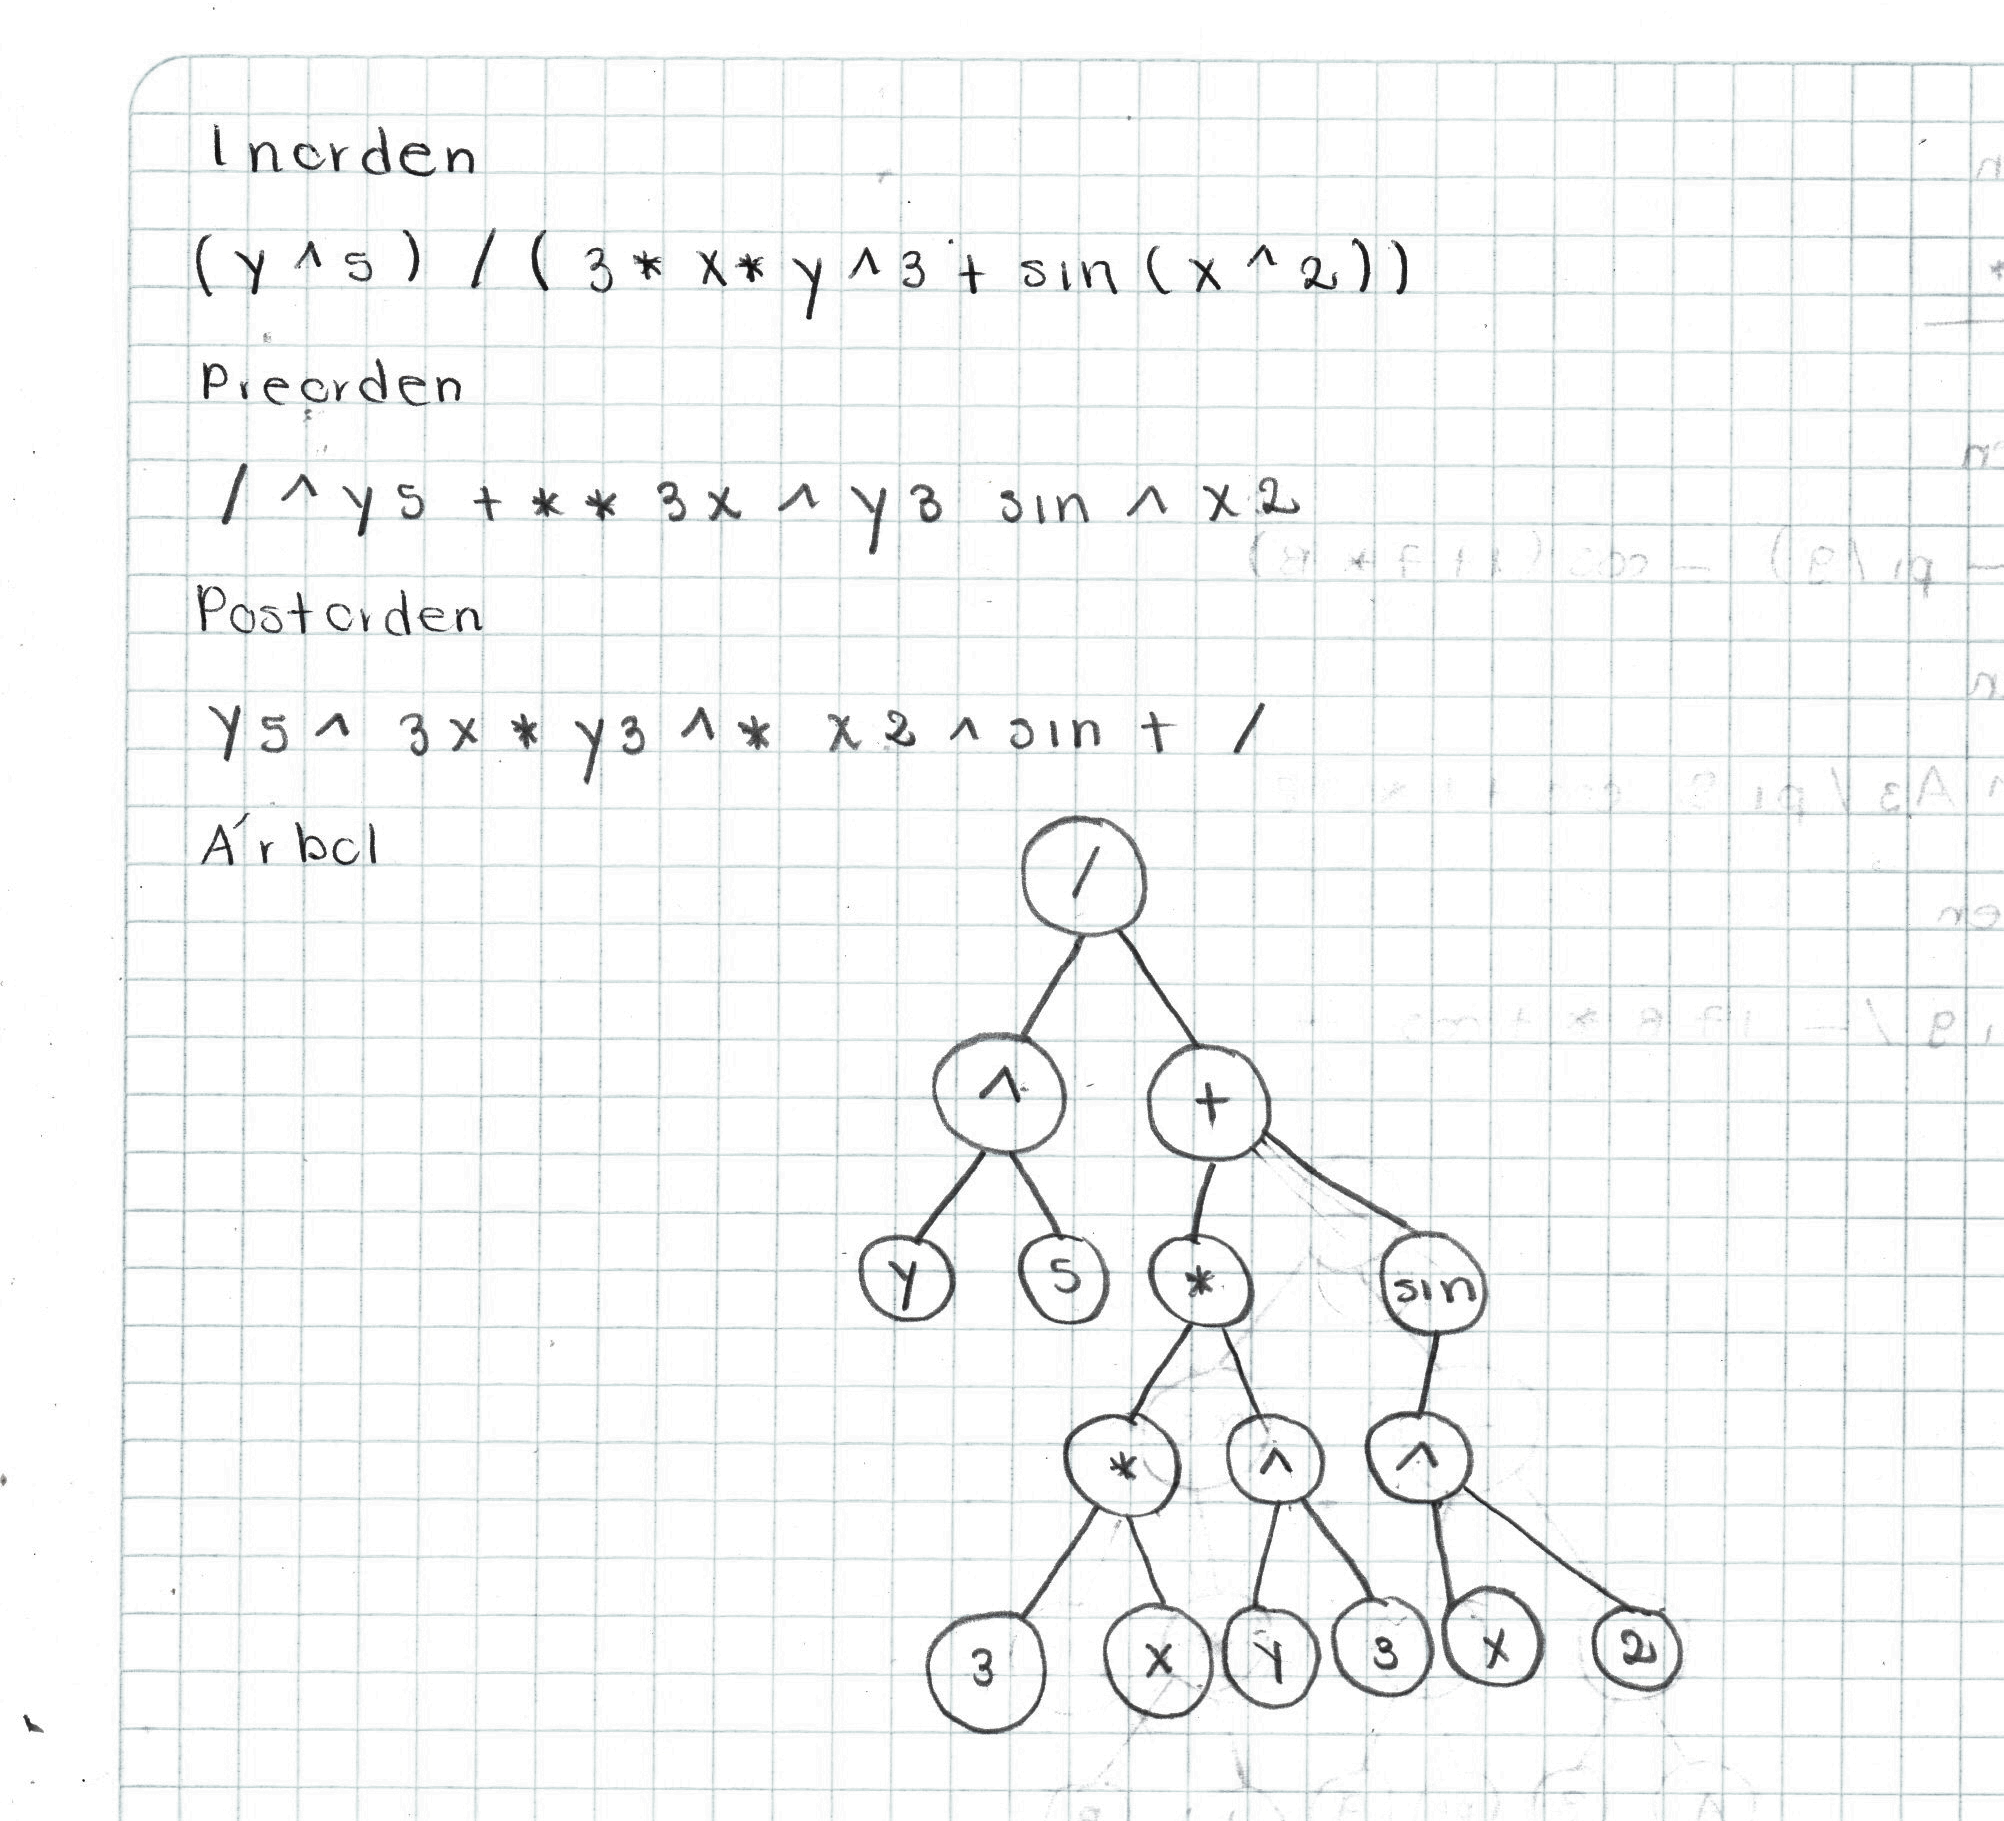 Inorden
(y ^ 5) / (3 * x * y ^ 3 + sin (x ^ 2))
Preorden
/ ^ y 5 + * * 3 x ^ y 3 sin ^ x 2
Postorden
y 5 ^ 3 x * y 3 ^ * x 2 ^ sin + /
Árbol
/
^ +
y 5 * sin
* ^ ^
3 x y 3 x 2